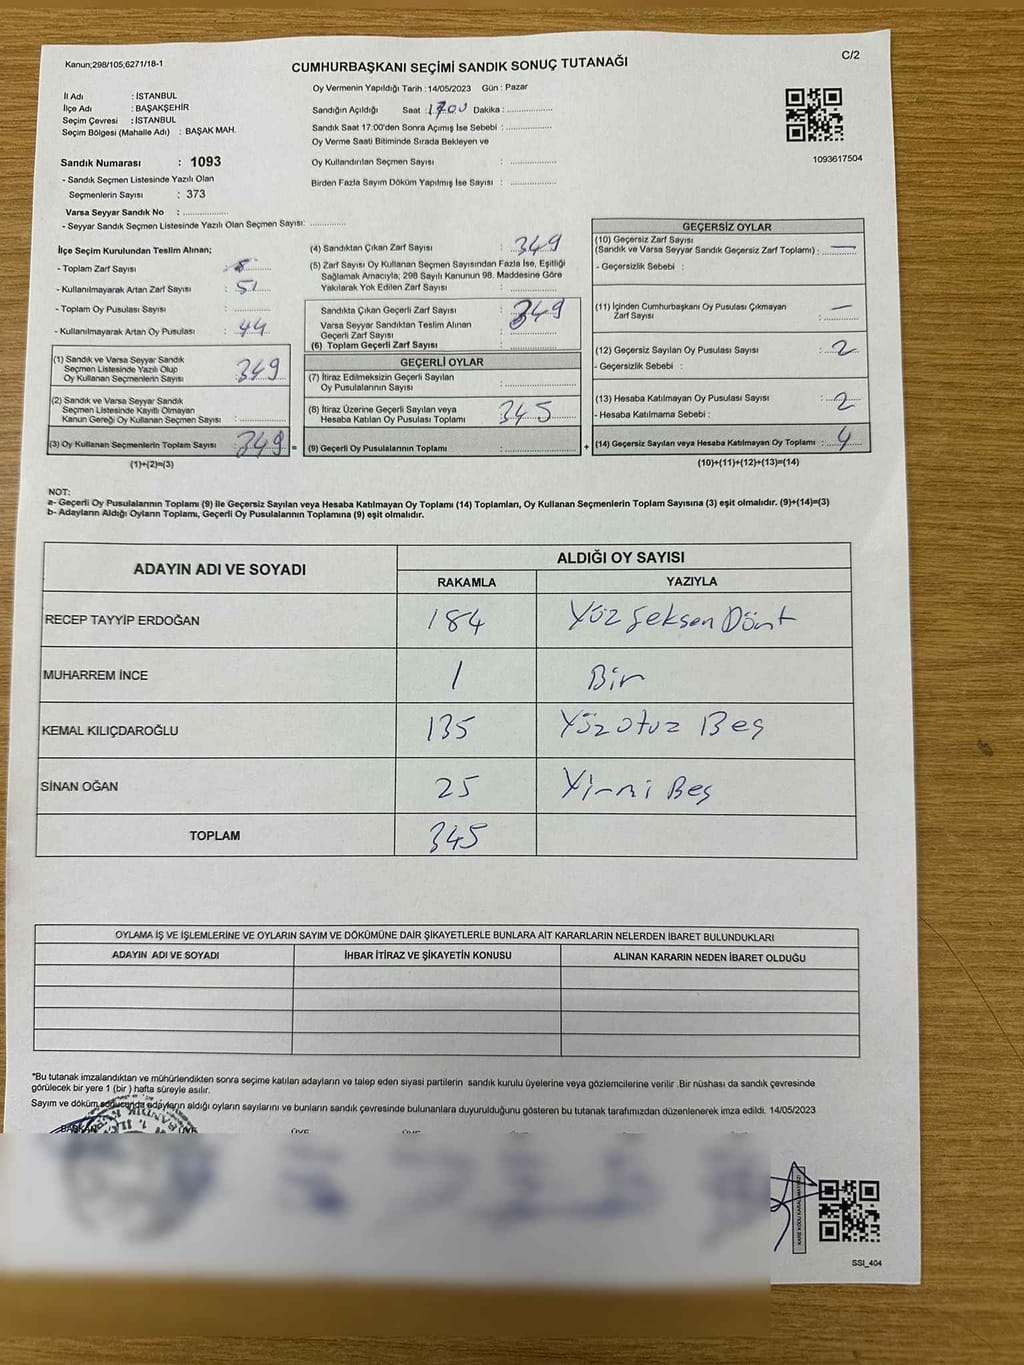 Kanun;298/105;6271/18-1
CUMHURBAŞKANI SEÇİMİ SANDIK SONUÇ TUTANAĞI
C/2
İl Adı : İSTANBUL
İlçe Adı : BAŞAKŞEHİR
Seçim Çevresi : İSTANBUL
Seçim Bölgesi (Mahalle Adı) : BAŞAK MAH.
Sandık Numarası : 1093
- Sandık Seçmen Listesinde Yazılı Olan
Seçmenlerin Sayısı : 373
Varsa Seyyar Sandık No : ..............
- Seyyar Sandık Seçmen Listesinde Yazılı Olan Seçmen Sayısı: ..........
Oy Vermenin Yapıldığı Tarih : 14/05/2023 Gün : Pazar
Sandığın Açıldığı Saat : 1700 Dakika : ..............
Sandık Saat 17:00'den Sonra Açımış İse Sebebi : ..............
Oy Verme Saati Bitiminde Sırada Bekleyen ve
Oy Kullandırılan Seçmen Sayısı : ..............
Birden Fazla Sayım Döküm Yapılmış İse Sayısı : ..............
1093617504
İlçe Seçim Kurulundan Teslim Alınan;
- Toplam Zarf Sayısı :
- Kullanılmayarak Artan Zarf Sayısı : 51
- Toplam Oy Pusulası Sayısı : ..............
- Kullanılmayarak Artan Oy Pusulası : 44
(1) Sandık ve Varsa Seyyar Sandık
Seçmen Listesinde Yazılı Olup
Oy Kullanan Seçmenlerin Sayısı : 349
(2) Sandık ve Varsa Seyyar Sandık
Seçmen Listesinde Kayıtlı Olmayan
Kanun Gereği Oy Kullanan Seçmen Sayısı : ..............
(3) Oy Kullanan Seçmenlerin Toplam Sayısı : 349 =
(1)+(2)=(3)
(4) Sandıktan Çıkan Zarf Sayısı : 349
(5) Zarf Sayısı Oy Kullanan Seçmen Sayısından Fazla İse, Eşitliği
Sağlamak Amacıyla; 298 Sayılı Kanunun 98. Maddesine Göre
Yakılarak Yok Edilen Zarf Sayısı : ..............
Sandıkta Çıkan Geçerli Zarf Sayısı : 349
Varsa Seyyar Sandıktan Teslim Alınan
Geçerli Zarf Sayısı : ..............
(6) Toplam Geçerli Zarf Sayısı : ..............
GEÇERLİ OYLAR
(7) İtiraz Edilmeksizin Geçerli Sayılan
Oy Pusulalarının Sayısı : ..............
(8) İtiraz Üzerine Geçerli Sayılan veya
Hesaba Katılan Oy Pusulası Toplamı : 345
(9) Geçerli Oy Pusulalarının Toplamı : .............. +
GEÇERSİZ OYLAR
(10) Geçersiz Zarf Sayısı
(Sandık ve Varsa Seyyar Sandık Geçersiz Zarf Toplamı) : —
- Geçersizlik Sebebi :
(11) İçinden Cumhurbaşkanı Oy Pusulası Çıkmayan
Zarf Sayısı : —
(12) Geçersiz Sayılan Oy Pusulası Sayısı : 2
- Geçersizlik Sebebi :
(13) Hesaba Katılmayan Oy Pusulası Sayısı : 2
- Hesaba Katılmama Sebebi :
(14) Geçersiz Sayılan veya Hesaba Katılmayan Oy Toplamı : 4
(10)+(11)+(12)+(13)=(14)
NOT:
a- Geçerli Oy Pusulalarının Toplamı (9) ile Geçersiz Sayılan veya Hesaba Katılmayan Oy Toplamı (14) Toplamları, Oy Kullanan Seçmenlerin Toplam Sayısına (3) eşit olmalıdır. (9)+(14)=(3)
b- Adayların Aldığı Oyların Toplamı, Geçerli Oy Pusulalarının Toplamına (9) eşit olmalıdır.
ADAYIN ADI VE SOYADI
ALDIĞI OY SAYISI
RAKAMLA YAZIYLA
RECEP TAYYİP ERDOĞAN 184 Yüz Seksen Dört
MUHARREM İNCE 1 Bir
KEMAL KILIÇDAROĞLU 135 Yüz otuz Beş
SİNAN OĞAN 25 Yirmi Beş
TOPLAM 345
OYLAMA İŞ VE İŞLEMLERİNE VE OYLARIN SAYIM VE DÖKÜMÜNE DAİR ŞİKAYETLERLE BUNLARA AİT KARARLARIN NELERDEN İBARET BULUNDUKLARI
ADAYIN ADI VE SOYADI İHBAR İTİRAZ VE ŞİKAYETİN KONUSU ALINAN KARARIN NEDEN İBARET OLDUĞU
*Bu tutanak imzalandıktan ve mühürlendikten sonra seçime katılan adayların ve talep eden siyasi partilerin sandık kurulu üyelerine veya gözlemcilerine verilir .Bir nüshası da sandık çevresinde
görülecek bir yere 1 (bir ) hafta süreyle asılır.
Sayım ve döküm sonucunda adayların aldığı oyların sayılarını ve bunların sandık çevresinde bulunanlara duyurulduğunu gösteren bu tutanak tarafımızdan düzenlenerek imza edildi. 14/05/2023
BAŞKAN ÜYE ÜYE
SSI_404